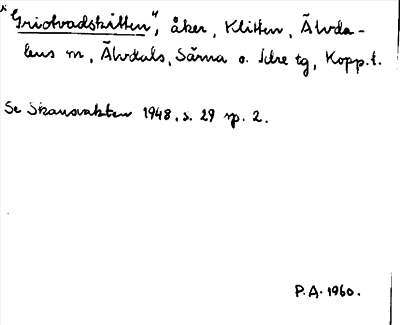 "Griotvadskitten", åker, Klitten, Älvda-
lens m, Älvdals, Särna o. Idre tg, Kopp.l.
Se Skansvakten 1948, s. 29 sp. 2.
P.A. 1960.